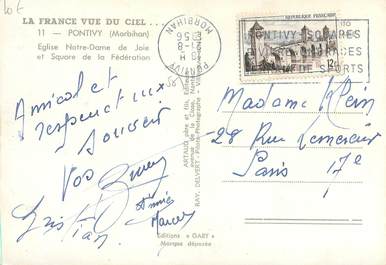 LA FRANCE VUE DU CIEL . . .
11 — PONTIVY (Morbihan)
Eglise Notre-Dame de Joie
et Square de la Fédération
Amical et
respectueux
souvenir
Vos
Aimés
Marcel
Cristian
ARTAUD père et fils, Editeurs
RAY. DELVERT - Pilote-Photographe
Editions « GABY »
Marque déposée
PONTIVY MORBIHAN
18 H
21-8
56
REPUBLIQUE FRANÇAISE
12F
PONTIVY SQUARES
DE SPORTS
Madame Klein
28 Rue Lemercier
Paris 17e